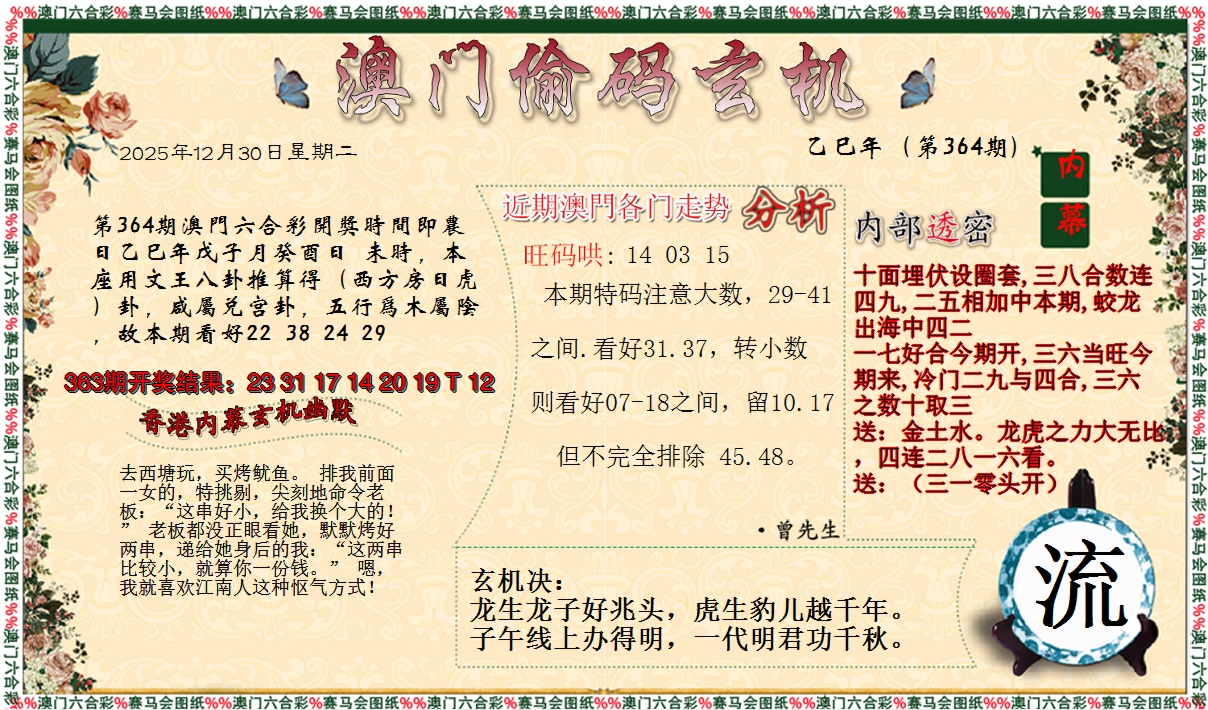 %%澳门六合彩%赛马会图纸%%澳门六合彩%赛马会图纸%%澳门六合彩%赛马会图纸%%澳门六合彩%赛马会图纸%%澳门六合彩%赛马会图纸%%澳门六合彩%赛马会图纸%%
澳门偷码玄机
2025年12月30日星期二
乙巳年（第364期）
内
幕
第364期澳門六合彩開獎時間即農
日乙巳年戊子月癸酉日 未時，本
座用文王八卦推算得（西方房日虎
）卦，咸屬兑宫卦，五行爲木屬陰
，故本期看好22 38 24 29
363期开奖结果：23 31 17 14 20 19 T 12
香港内幕玄机幽默
去西塘玩，买烤鱿鱼。 排我前面
一女的，特挑剔，尖刻地命令老
板：“这串好小，给我换个大的！
” 老板都没正眼看她，默默烤好
两串，递给她身后的我：“这两串
比较小，就算你一份钱。” 嗯，
我就喜欢江南人这种怄气方式！
近期澳門各门走势 分析
旺码哄: 14 03 15
本期特码注意大数，29-41
之间.看好31.37，转小数
则看好07-18之间，留10.17
但不完全排除 45.48。
·曾先生
内部透密
十面埋伏设圈套,三八合数连
四九,二五相加中本期,蛟龙
出海中四二
一七好合今期开,三六当旺今
期来,冷门二九与四合,三六
之数十取三
送：金土水。龙虎之力大无比
，四连二八一六看。
送：（三一零头开）
玄机决：
龙生龙子好兆头，虎生豹儿越千年。
子午线上办得明，一代明君功千秋。
流
%%澳门六合彩%赛马会图纸%%澳门六合彩%赛马会图纸%%澳门六合彩%赛马会图纸%%澳门六合彩%赛马会图纸%%澳门六合彩%赛马会图纸%%澳门六合彩%赛马会图纸%%